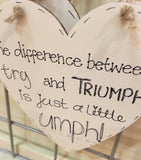 he difference betwee
try and TRIUMPH
is just a little
UMPH!